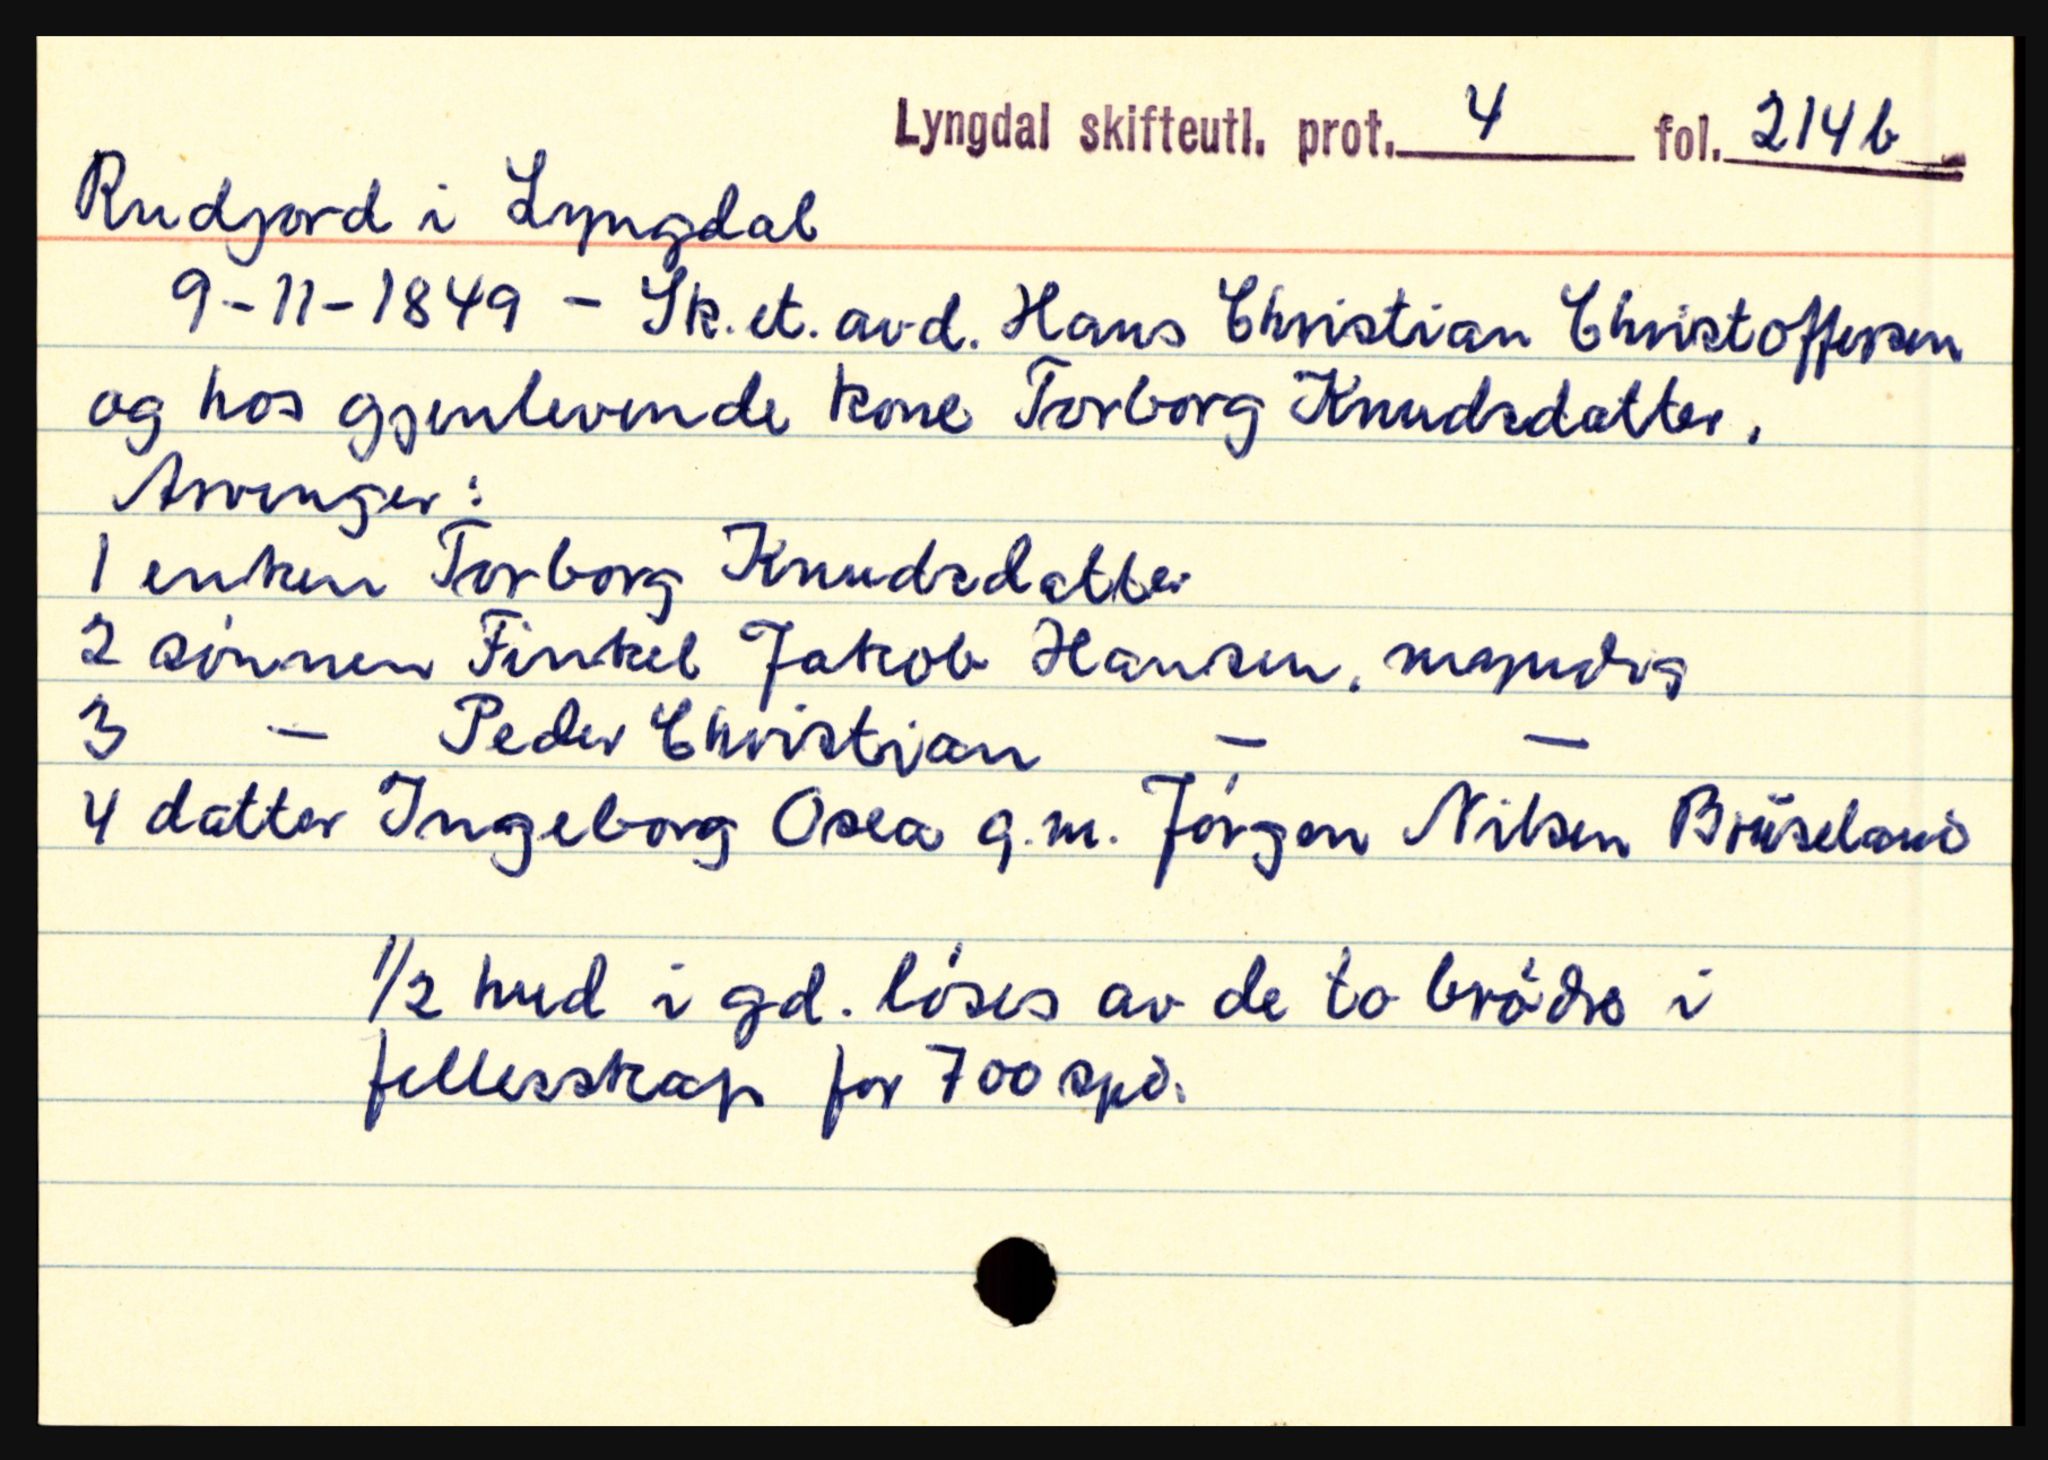 Lyngdal skifteutl. prot. 4 fol. 214b
Rudjord i Lyngdal
9-11-1849 - Sk. et. avd. Hans Christian Christoffersen
og hos gjenlevende kone Torborg Knudsdatter.
Arvinger:
1 enken Torborg Knudsdatter
2 sønnen Finkel Jakob Hansen, myndig
3 — Peder Christian — —
4 datter Ingeborg Osea g.m. Jørgen Nilsen Brüseland
1/2 hud i gd. løses av de to brødre i
fellesskap for 700 spd.